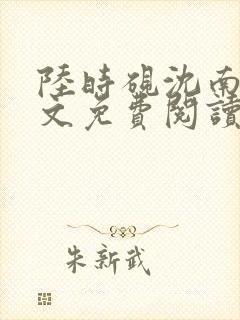 陸時硯沈南
文免費閱讀
朱新武